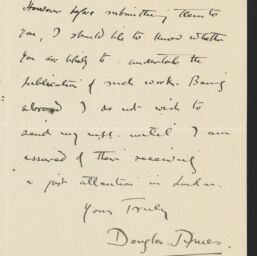 However before submitting them to
you, I should like to know whether
you are likely to undertake the
publication of such work. Being
abroad I do not wish to
send my mss. until I am
assured of their receiving
a just attention in London.
Yours Truly
Douglas